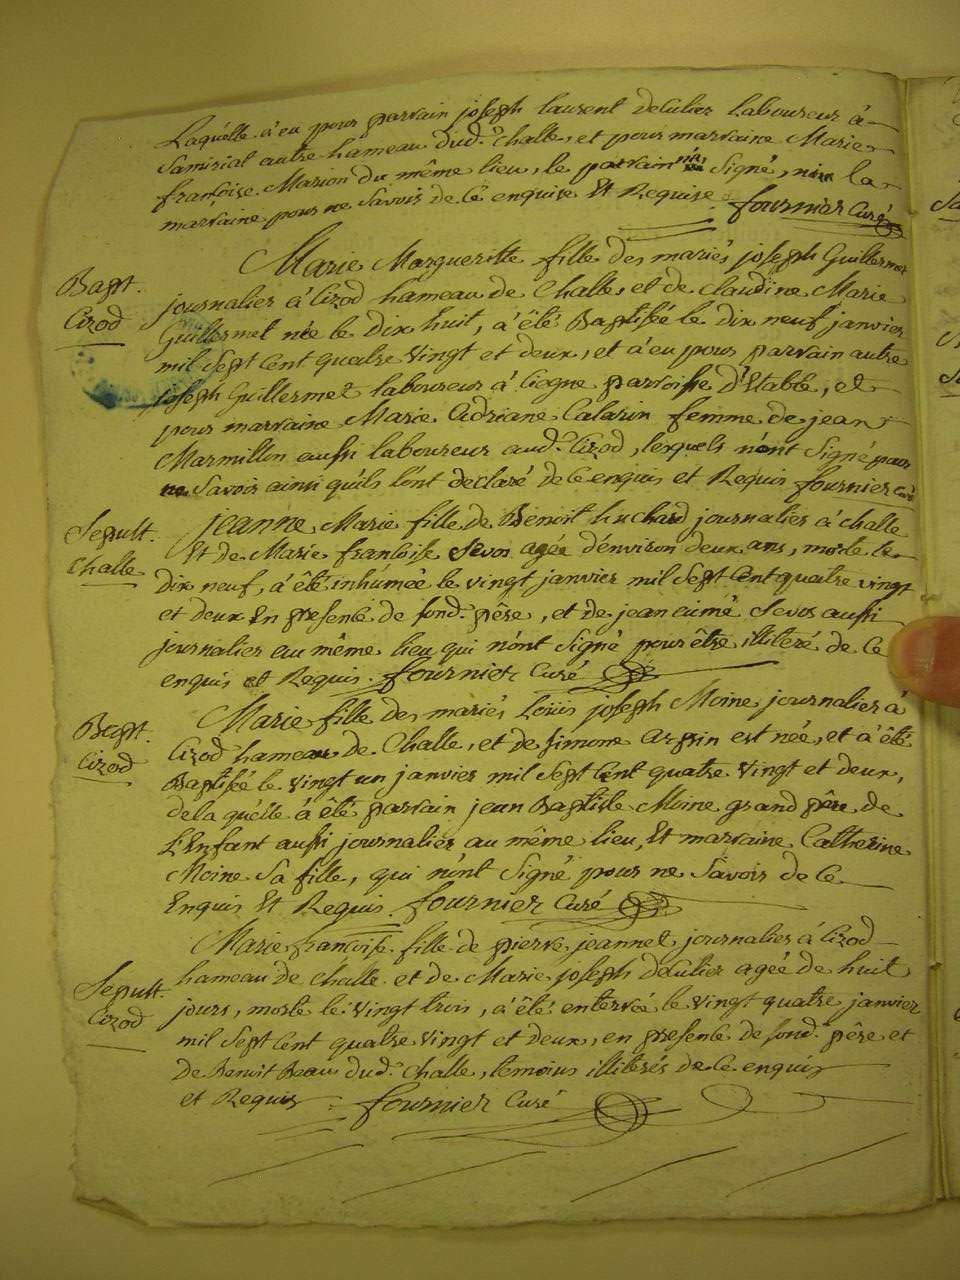 Laquelle à eu pour parrain joseph laurent deculier Laboureur à
Samisiat autre hameau dud.t Challe, et pour marraine Marie
françoise Marion du même lieu, le parrain Signé, la
marraine pour ne Savoir de ce enquise Et Requise. fournier Curé
Bapt.
Cizod
Marie Margueritte fille des mariés joseph Guillermet
journalier à Cizod hameau de Challe, et de claudine Marie
Guillermet née le dix huit, à êté Baptisée le dix neuf janvier
mil Sept Cent quatre Vingt et deux, et à eu pour parrain autre
joseph Guillermet laboureur à Ciogne parroisse d'Etable, et
pour marraine Marie Adriane Calarin femme de jean
Marmillon aussi laboureur aud.t Cizod, lesquels n'ont Signé pour
ne Savoir ainsi qu'ils l'ont declaré de ce enquis et Requis fournier curé
Sepult.
Challe
jeanne Marie fille de Benoit huchard journalier à challe
Et de Marie françoise Sevos agée d'environ deux ans, morte le
dix neuf, à êté inhumée le vingt janvier mil Sept Cent quatre vingt
et deux En presence de Sond.t pêre, et de jean aimé Sevos aussi
journalier au même lieu qui n'ont Signé pour être illiteré de Ce
enquis et Requis. fournier Curé
Bapt.
Cizod
Marie fille des mariés Loüis joseph Moine journalier à
Cizod hameau de Challe, et de Simone Arpin est née, et à êté
Baptisée le vingt un janvier mil Sept Cent quatre Vingt et deux,
de la quelle à êté parrain jean Baptiste Moine grand pêre de
L'Enfant aussi journalier au même lieu, Et marraine Catherine
Moine Sa fille, qui n'ont Signé pour ne Savoir de Ce
Enquis Et Requis. fournier Curé
Marie françoise fille de pierre jeannet journalier à Cizod
Sepult.
Cizod
hameau de Challe et de Marie joseph deculier agée de huit
jours, morte le Vingt trois, à êté enterrée le Vingt quatre janvier
mil Sept Cent quatre Vingt et deux, en presence de Sond.t pêre et
de Benoit Beau dud.t Challe, temoins illiterés de Ce enquis
et Requis. fournier Curé